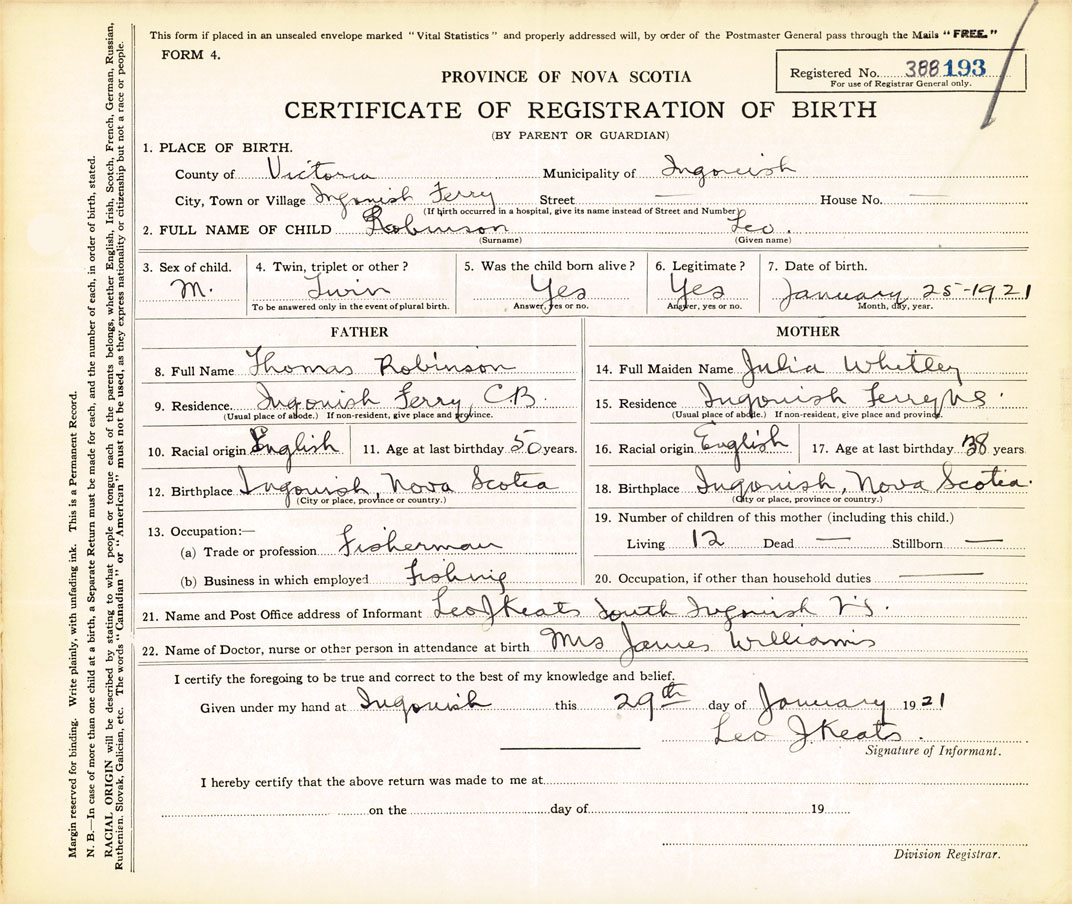 This form if placed in an unsealed envelope marked "Vital Statistics" and properly addressed will, by order of the Postmaster General pass through the Mails "FREE."
FORM 4.
PROVINCE OF NOVA SCOTIA
Registered No. 388193
For use of Registrar General only.
CERTIFICATE OF REGISTRATION OF BIRTH
(BY PARENT OR GUARDIAN)
1. PLACE OF BIRTH.
County of Victoria Municipality of Ingonish
City, Town or Village Ingonish Ferry Street — House No. —
(If birth occurred in a hospital, give its name instead of Street and Number)
2. FULL NAME OF CHILD Robinson Leo.
(Surname) (Given name)
3. Sex of child. 4. Twin, triplet or other? 5. Was the child born alive? 6. Legitimate? 7. Date of birth.
M. Twin Yes Yes January 25-1921
To be answered only in the event of plural birth. Answer, yes or no. Answer, yes or no. Month, day, year.
FATHER
8. Full Name Thomas Robinson
9. Residence Ingonish Ferry C.B.
(Usual place of abode.) If non-resident, give place and province.
10. Racial origin English 11. Age at last birthday 50 years.
12. Birthplace Ingonish, Nova Scotia
(City or place, province or country.)
13. Occupation:—
(a) Trade or profession Fisherman
(b) Business in which employed Fishing
MOTHER
14. Full Maiden Name Julia Whitley
15. Residence Ingonish Ferry NS.
(Usual place of abode.) If non-resident, give place and province.
16. Racial origin English 17. Age at last birthday 38 years
18. Birthplace Ingonish, Nova Scotia.
(City or place, province or country.)
19. Number of children of this mother (including this child.)
Living 12 Dead — Stillborn —
20. Occupation, if other than household duties —
21. Name and Post Office address of Informant Leo J Keats South Ingonish
22. Name of Doctor, nurse or other person in attendance at birth Mrs James Williams
I certify the foregoing to be true and correct to the best of my knowledge and belief.
Given under my hand at Ingonish this 29th day of January 1921
Leo J. Keats.
Signature of Informant.
I hereby certify that the above return was made to me at
on the day of 19
Division Registrar.
Margin reserved for binding. Write plainly, with unfading ink. This is a Permanent Record.
N. B.—In case of more than one child at a birth, a Separate Return must be made for each, and the number of each, in order of birth, stated.
RACIAL ORIGIN will be described by stating to what people or tongue each of the parents belongs, whether English, Irish, Scotch, French, German, Russian,
Ruthenien, Slovak, Galician, etc. The words "Canadian" or "American" must not be used, as they express nationality or citizenship but not a race or people.